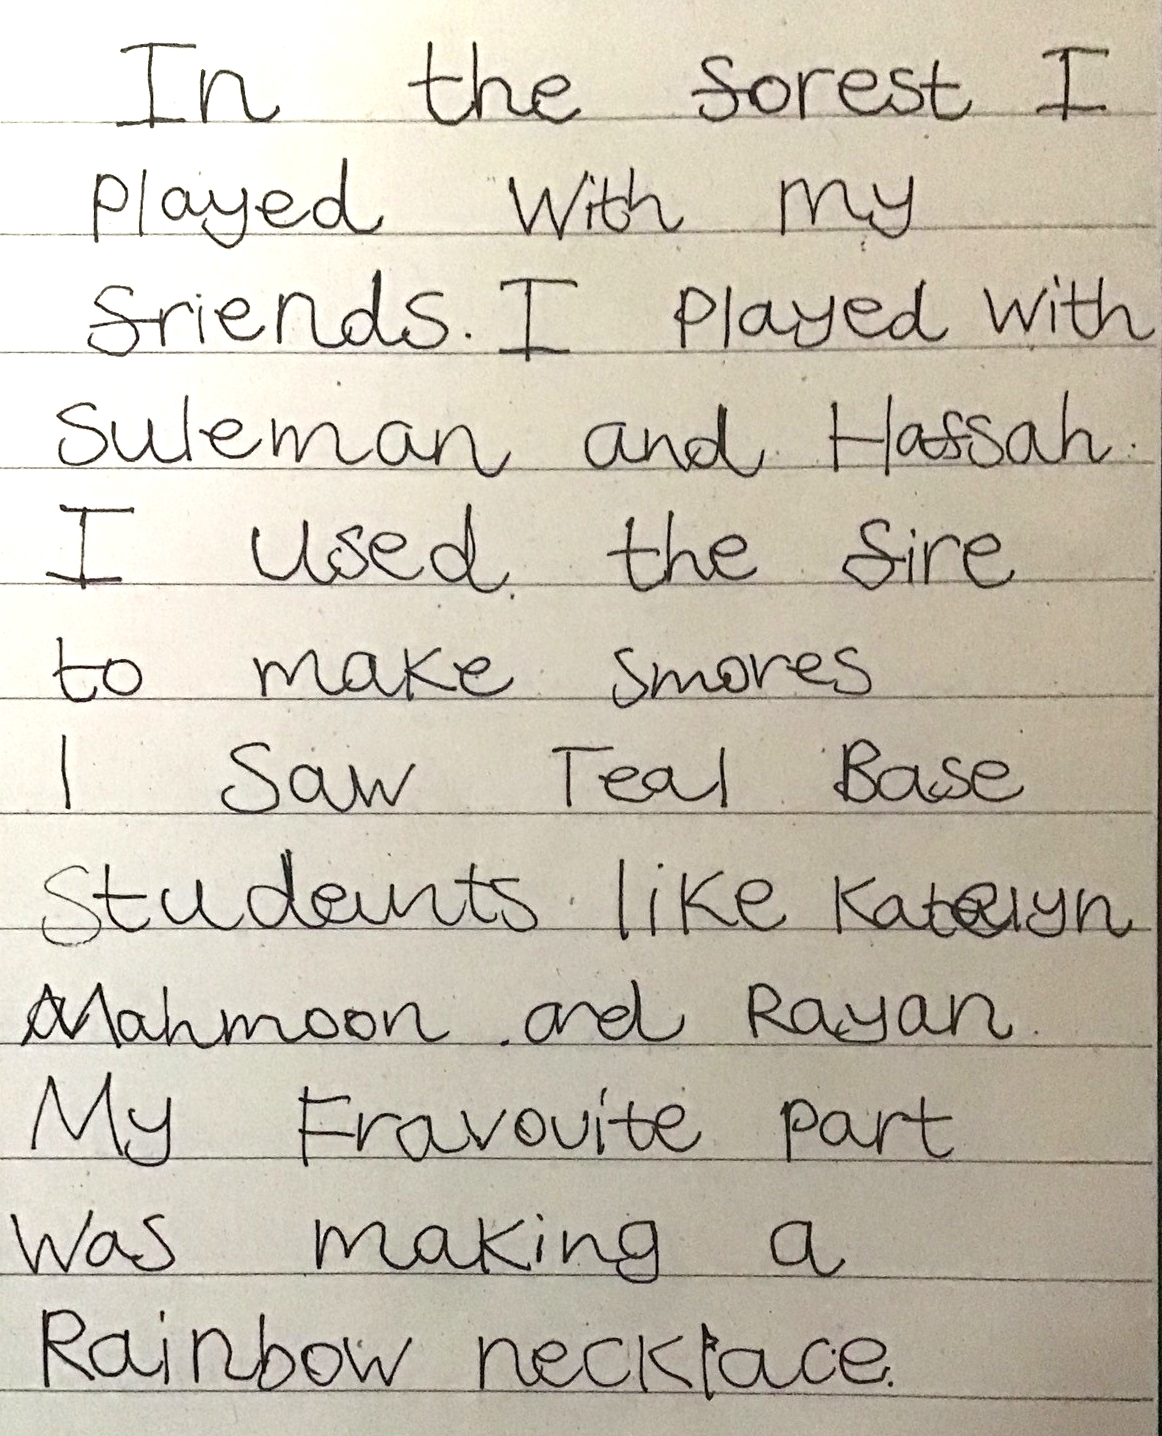 In the forest I
played with my
friends. I played with
Suleman and Hafsah.
I used the fire
to make smores
I Saw Teal Base
Students like Katelyn
Mahmoon and Rayan.
My Fravouite part
was making a
Rainbow necklace.